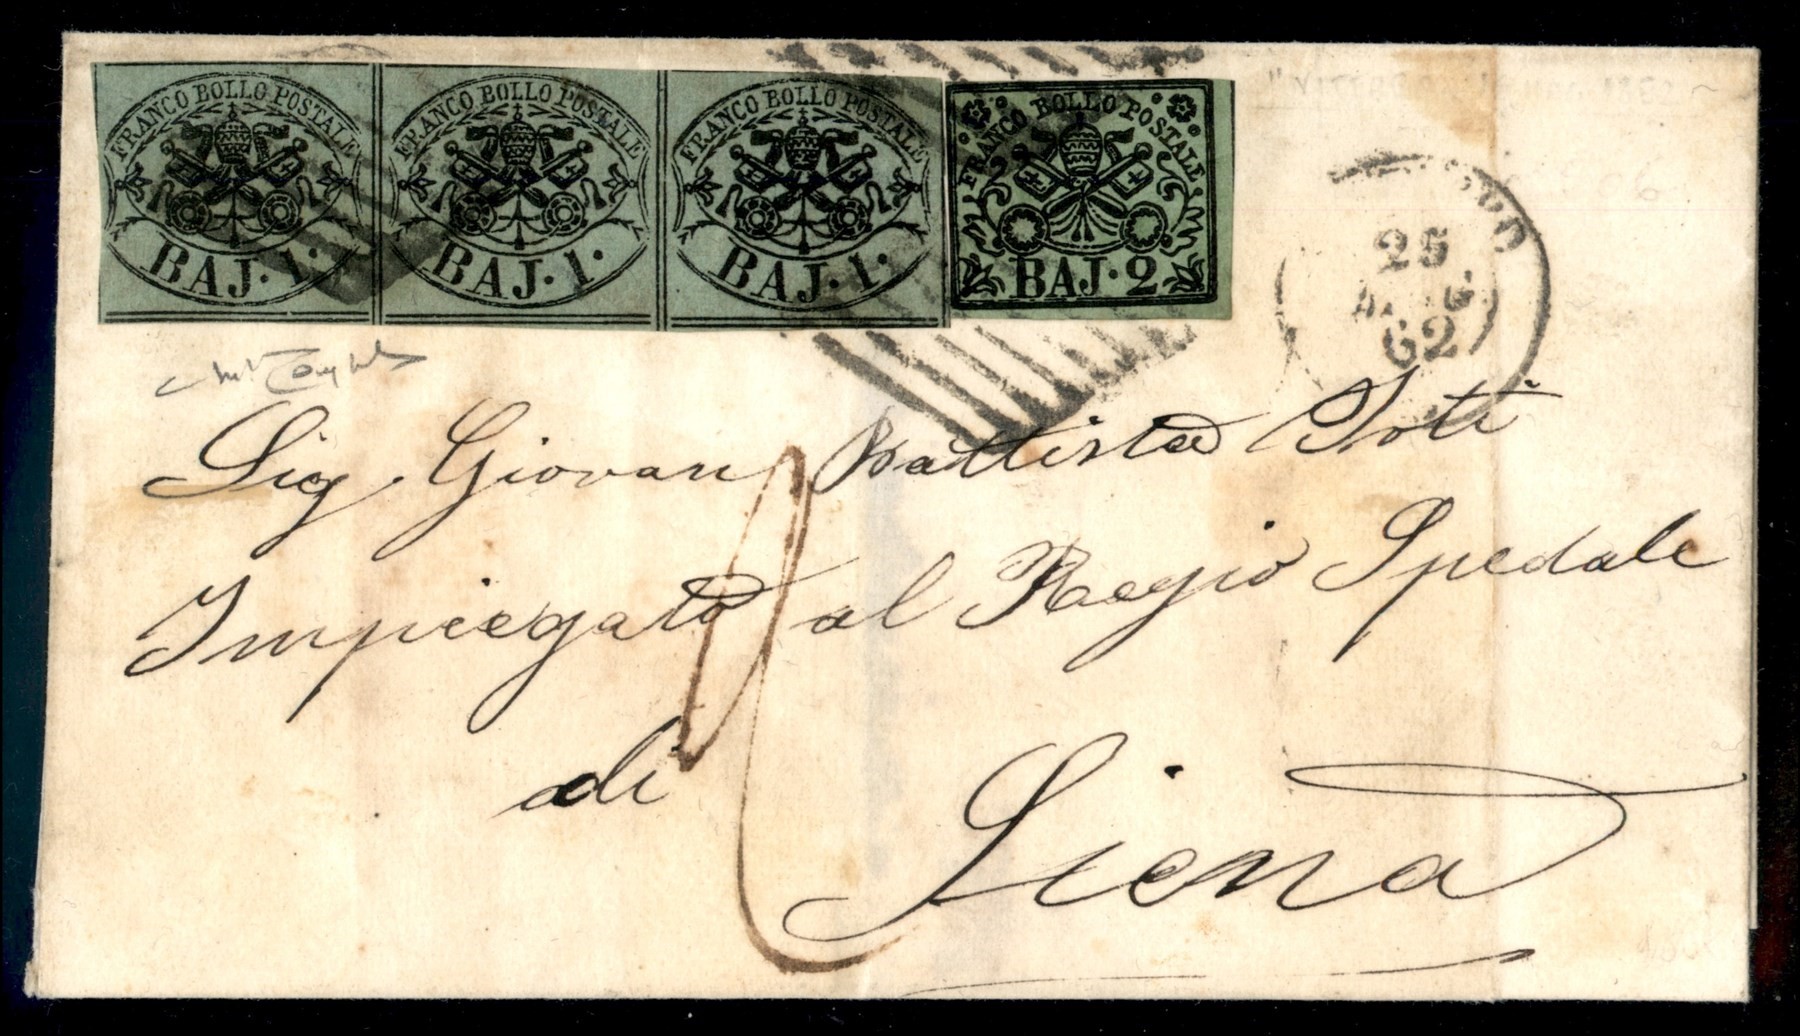 FRANCO BOLLO POSTALE
BAJ. 1.
FRANCO BOLLO POSTALE
BAJ. 1.
FRANCO BOLLO POSTALE
BAJ. 1.
FRANCO BOLLO POSTALE
BAJ. 2
25
62
Sig. Giovan Battista Toti
Impiegato al Regio Spedale
di
Siena